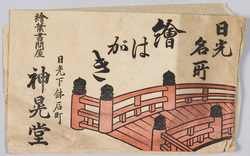 日光
名所
繪はがき
繪葉書問屋
日光下鉢石町
神晃堂